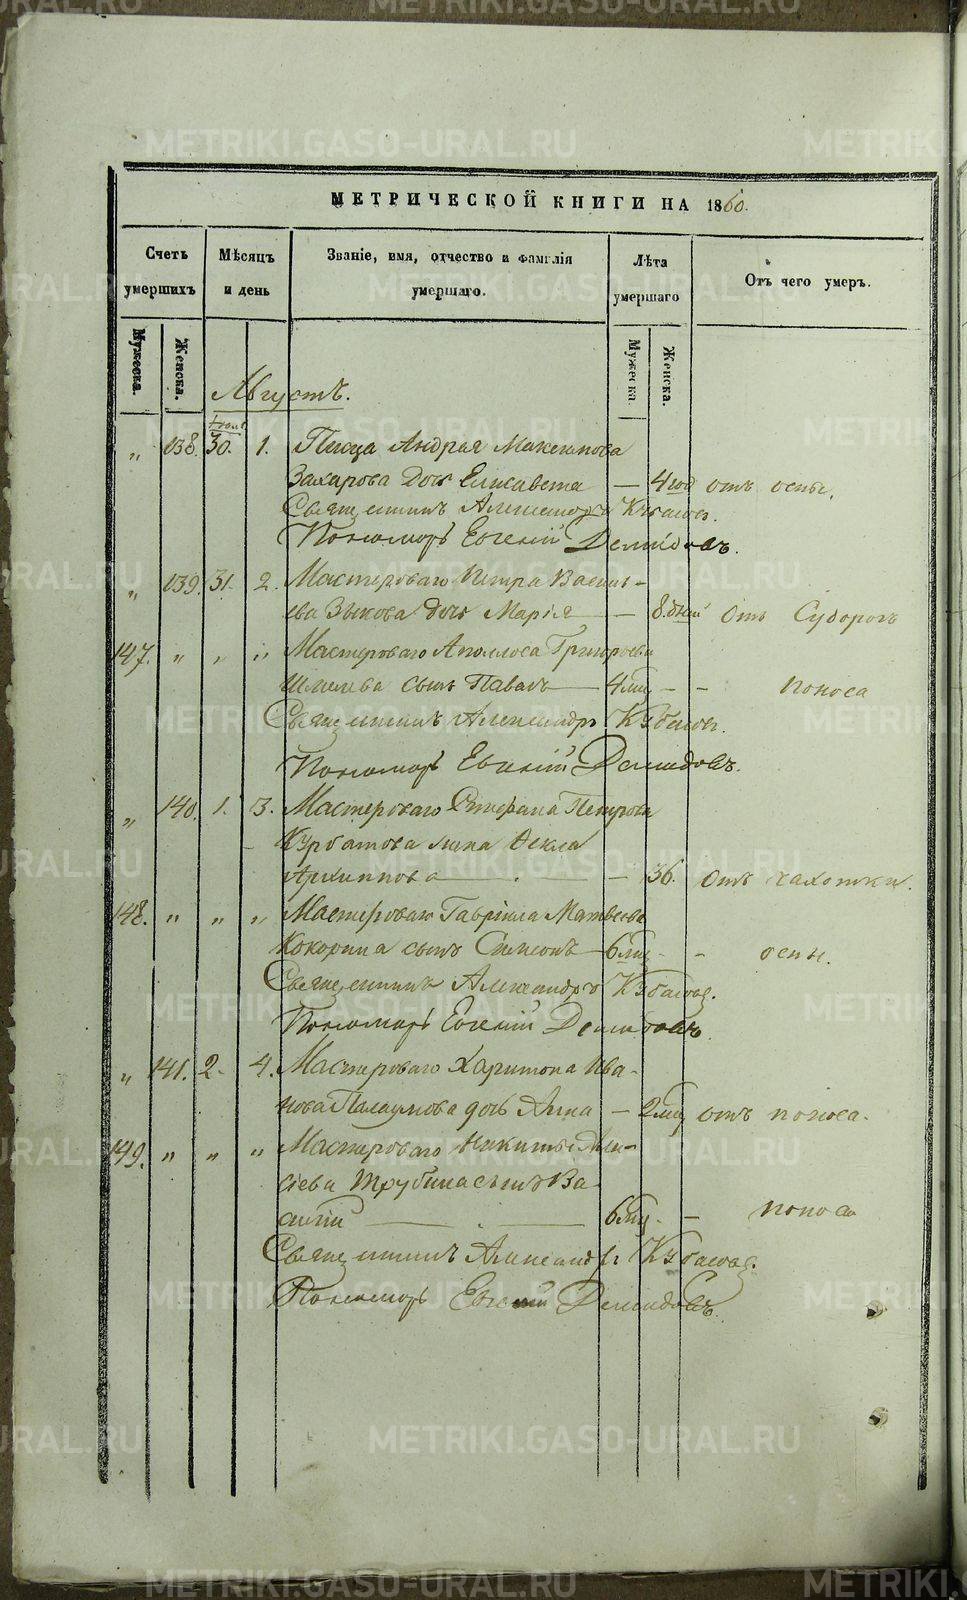 МЕТРИЧЕСКОЙ КНИГИ НА 1860.
Счетъ умершихъ
Мѣсяцъ и день
Званіе, имя, отчество и фамилія умершаго.
Лѣта умершаго
Отъ чего умеръ.
Мужеска.
Женска.
Мужеска
Женска.
Августъ.
„ 138. 30. 1. Писца Андрея Максимова
Захарова дочь Елисавета — 4 год отъ оспы.
Священникъ Александръ
Пономарь Евгеній Демидовъ.
„ 139. 31. 2. Мастероваго Петра Василь-
ева Зыкова дочь Марія — 8. дней отъ Судорогъ
147. „ „ „ Мастероваго Аполлоса Григорьева
Шмелева сынъ Павелъ — 4 мѣц - - поноса
Священникъ Александръ
Пономарь Евгеній Демидовъ.
„ 140. 1. 3. Мастероваго Стефана Петрова
Курбатова жена Фекла
Архиппова — 36. отъ чахотки.
148. „ „ „ Мастероваго Гавріила Матвеева
Кокорина сынъ Симеонъ — 6 мѣц - - оспы.
Священникъ Александръ
Пономарь Евгеній Демидовъ
„ 141. 2. 4. Мастероваго Харитона Ива-
нова дочь Анна — 2 мѣц отъ поноса.
149. „ „ „ Мастероваго Никиты
сіева Трубина сынъ Ва-
силій — 6 мѣц - - поноса
Священникъ Александръ
Пономарь Евгеній Демидовъ.
METRIKI.GASO-URAL.RU